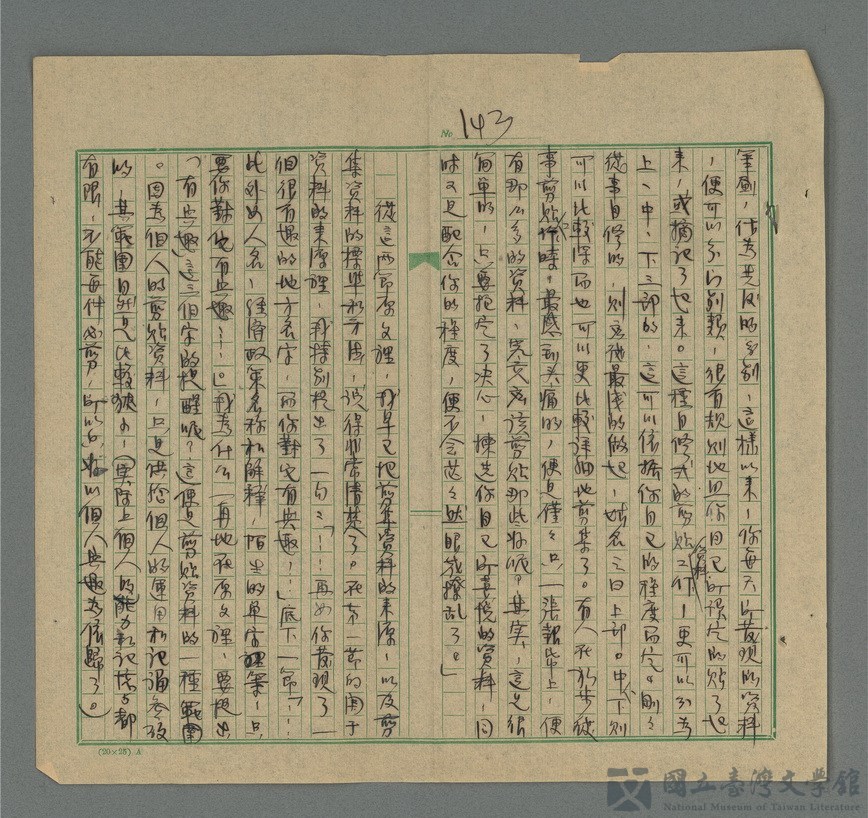 No. 143
筆劃,作為共同的分別,這樣以來,你每天所發現的資料
,便可以分門別類,很有規則地照你自己所謀定的貼了起
來,或摘記了起來。這種自修式的剪貼資料工作!更可以分為
上、中、下三部的,這可以依據你自己的程度而定。剛剛
從事自修的,則應從最淺的做起,始名之曰上部。中、下則
可以比較深而也可以更比較詳細地剪集了。有人在初步從
事剪貼工作時,最感到頭痛的,便是僅僅只一張報帋上,便
有那么多的資料,究竟應該剪貼那些好呢?其實,這是很
簡單的,只要抱定了決心,揀選你自己所喜悅的資料,同
時又是配合你的程度,便不会茫茫然眼花撩乱了。」
從這兩節原文裡,我早已把剪集資料的來源,以及剪
集資料的標準和方法,說得非常清楚了。在第一節的関于
資料的來源裡,我特別提出了一句:「……再如你發現了一
個很有趣的地方名字,而你對它有興趣……」底下一節「……
此外如人名,經濟政策名称和解釋,陌生的單字課等,只
要你對他有興趣……。」我為什么一再地在原文裡,要提出
「有興趣」這三個字的提醒呢?這便是剪貼資料的一種範圍
。因為個人的剪貼資料,只是供給個人的運用和記誦參攷
的,其範圍自然是比較狹小,(實際上個人的能力和記憶力都
有限,不能每件必剪,所以只好以個人興趣為依歸了。)
(20×25) A
國立臺灣文學館
National Museum of Taiwan Literature